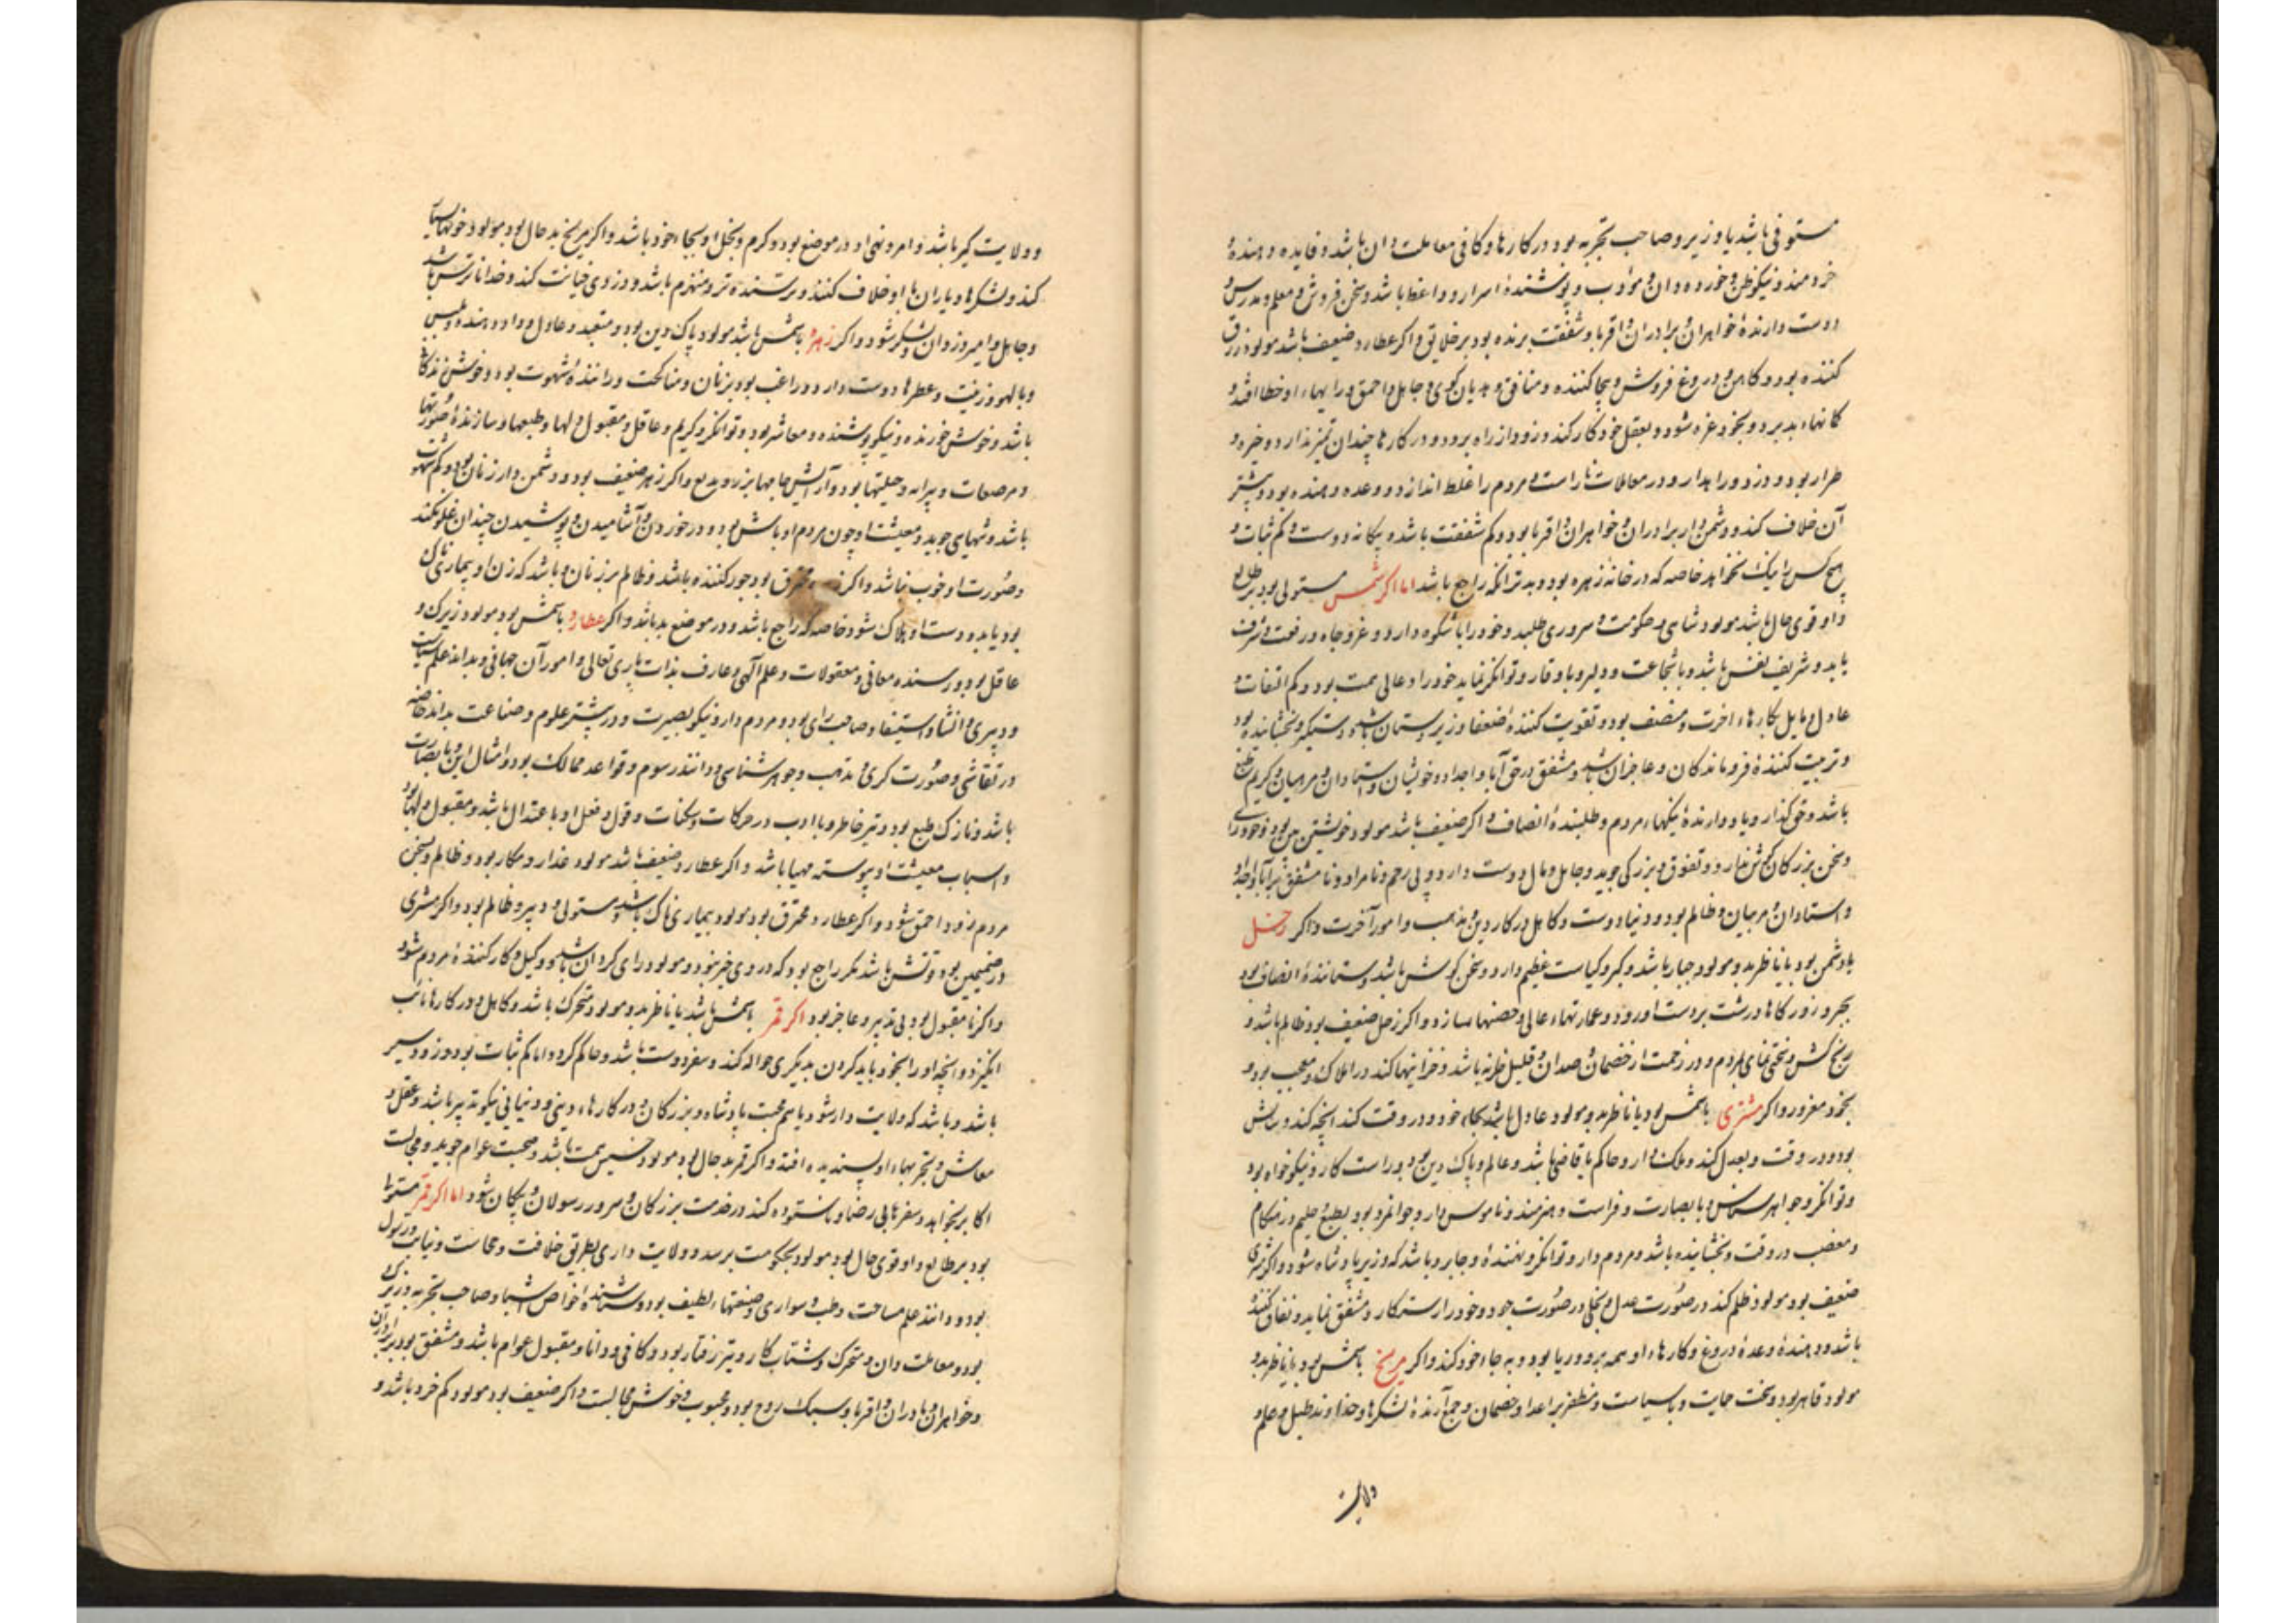 مستوفی باشد یا وزیر و صاحب تجربه بود در کارها و کافی معاملت دان باشد و فایده دهندهٔ
خردمند و نیکوظن و خورده دان و مؤدب و پوشندهٔ اسرار و واعظ باشد و سخن فروش و معلم و مدرس و
دوست دارندهٔ خواهران و برادران و اقربا و شفقت برنده بود بر خلایق و اکر عطارد ضعیف باشد مولود زرق
کننده بود و کاهن و دروغ فروش و هجا کننده و منافق و هدیان کوی و جاهل و احمق و رایهاء او خطا افتد و
کمانهاء بد برد و بخود غره شود و بعقل خود کار کند و زود از راه برود و در کارها چندان تمیز ندارد و خیره و
طرار بود و دزد را بدارد و در معاملات ناراست و مردم را غلط اندازد و وعده دهنده بود و بیشتر
آن خلاف کند و دشمن دار برادران و خواهران و اقربا بود و کم شفقت باشد و بیکانه دوست و کم ثبات و
هیچ کس را نیک نخواهد خاصه که در خانه زهره بود و بدتر انکه راجع باشد اما اکر شمس مستولی بود بر طالع
و او قوی حال باشد مولود شاهی و حکومت و سروری طلبد و خود را با شکوه دارد و عز و جاه و رفعت و شرف
یابد و شریف نفس باشد و با شجاعت و دلیر و با وقار و توانکر نماید خود را و عالی همت بود و کم التفات و
عادل و مایل بکارهاء اخرت و منصف بود و تقویت کنندهٔ ضعفا و زیردستان باشد و دستکیر و بخشاینده بود
و تربیت کنندهٔ فروماندکان و عاجزان باشد و مشفق در حق آبا و اجداد و خویشان و استادان و مربیان و کریم طبع
باشد و حق کذار و یاد دارندهٔ نیکیهاء مردم و طلبندهٔ انصاف و اکر ضعیف باشد مولود خویشتن بین بود و خودرای
و سخن بزرکان کوش ندارد و تفوق و بزرکی جوید و جاهل و مال دوست دارد و بی رحم و نامراد و نامشفق بر آبا و اجداد
و استادان و مربیان و ظالم بود و دنیا دوست و کاهل در کار دین و مذهب و امور آخرت و اکر زحل
با شمس بود یا ناظر بدو مولود جبار باشد و کبر و کیاست عظیم دارد و سخن کوش باشد و ستانندهٔ انصاف بود
بجبر و زور کارها درشت بدست اورد و عمارتهاء عالی و حصنها سازد و اکر زحل ضعیف بود ظالم باشد و
رنج کش و سختی نمای بمردم و در زحمت از خصمان و قلیل باشد و خزاینها کند در املاک و معجب بود و
بخود مغرور و اکر مشتری با شمس بود یا ناظر بدو مولود عادل باشد بجاء خود و در وقت کند انچه کند و
بود و در وقت و بعدل کند و ملک دار و حاکم یا قاضی باشد و عالم و پاک دین بود و راست کار و نیکوخواه بود
و توانکر و جواهر شناس و با بصارت و فراست و هنرمند و ناموس دار و جوانمرد بود بطبع حلیم در هنکام
و مغضب در وقت و بخشاینده باشد و مردم دار و توانکر و نهنده و جابر و باشد که وزیر پادشاه شود و اکر مشتری
ضعیف بود مولود ظلم کند در صورت عدل و بخل در صورت جود و خود را راستکار و مشفق نماید و نفاق کننده
باشد و دهندهٔ وعدهٔ دروغ و کارهاء او همه بر و ریا بود و به جاء خود کند و اکر مریخ با شمس بود یا ناظر بدو
مولود قاهر بود و سخت حمایت و با سیاست و مظفر بر اعدا و خصمان و جمع آرندهٔ لشکرها و خداوند طبل و علم و
ولایت
و ولایت کیر باشد و امر و نهی او در موضع بود و کرم و بخل او بجاء خود باشد و اکر مریخ بد حال بود مولود خونهاء بسیار
کند و لشکرها و یاران با او خلاف کنند و ترسنده تر و منهزم باشد و دزدی و خیانت کند و خدا ناترس باشد
و جاهل و امیر دزدان و لشکر شود و اکر زهره با شمس باشد مولود پاک دین بود و متعبد و عادل و داد دهنده و طبیب
و با لهو و زینت و عطرها دوست دارد و راغب بود بزنان و مناکحت و رانندهٔ شهوت بود و خوش زندکانی
باشد و خوش خورنده و نیکو پوشنده و معاشر بود و توانکر و کریم و عاقل و مقبول دلها و طبعها و سازندهٔ صورتها
و مرصعات و پیرایه و حلیتها بود و آرایش جامها بزر و بدیع و اکر زهره ضعیف بود و دشمن دار زنان بود و کم شهوت
باشد و تنهایی جوید و معیشت او چون مردم اوباش بود و در خوردن و آشامیدن و پوشیدن چندان غلو نکند
و صورت او خوب نباشد و اکر محترق بود جور کننده باشد و ظالم بر زنان و باشد که زن او بیماری ناک
بود یا بد و دست او هلاک شود خاصه که راجع باشد و در موضع بد باشد و اکر عطارد با شمس بود مولود زیرک و
عاقل بود و رسنده معانی و معقولات و علم آلهی و عارف بذات باری تعالی و امور آن جهانی و بداند علم حساب
و دبیری و انشا و استیفا و صاحب رای بود و مردم دار و نیکو بصیرت و در بیشتر علوم و صناعت بداند خاصه
در نقاشی و صورت کری و مذهب و جوهر شناسی و دانند رسوم و قواعد ممالک بود و امثال این و با بصارت
باشد و نازک طبع بود و تیز خاطر و با ادب در حرکات و سکنات و قول و فعل او با عتدال باشد و مقبول دلها بود
و اسباب معیشت او پیوسته مهیا باشد و اکر عطارد ضعیف باشد مولود غدار و مکار بود و ظالم و بسخن
مردم زود احمق شود و اکر عطارد محترق بود مولود بیماری ناک باشد و مستولی و دبیر و ظالم بود و اکر مشتری
در صمیمین بود و قتش باشد مکر راجع بود که در وی خیر نبود و مولود رای کردان باشد و وکیل و کار کنندهٔ مردم شود
و اکر نا مقبول بود بی تدبیر و عاجز بود اکر قمر با شمس باشد یا ناظر بدو مولود متحرک باشد و کاهل و در کارها نایب
انکیزد و انچه او را بخود باید کردن بدیکری حواله کند و سفر دوست باشد و حاکم کردد اما کم ثبات بود و زود سیر
باشد و باشد که ولایت دار شود یا هم صحبت پادشاه و بزرکان و در کارهاء دینی و دنیایی نیکو تدبیر باشد و عقل و
معاش و تجربهاء او پسندیده افتد و اکر قمر بد حال بود مولود خسیس همت باشد و صحبت عوام جوید و مجالست
اکابر نخواهد و سفرها بی رضا و ناستوده کند در خدمت بزرکان و سرور رسولان و پیکان شود اما اکر قمر مستولی
بود بر طالع و او قوی حال بود مولود بحکومت برسد و ولایت داری بطریق خلافت و محاسبت و نیابت و رسول
بود و دانند علم مساحت و طب و سواری و صنعتهاء لطیف بود و شناسنده خواص اشیا و صاحب تجربه و زیرک
بود و معاملت دان و متحرک و شتاب کار و تیز رفتار بود و کافی و دانا و مقبول عوام باشد و مشفق بود بر برادران
و خواهران و مادران و اقربا و سبک روح بود و محبوب و خوش مجالست و اکر ضعیف بود مولود کم خرد باشد و